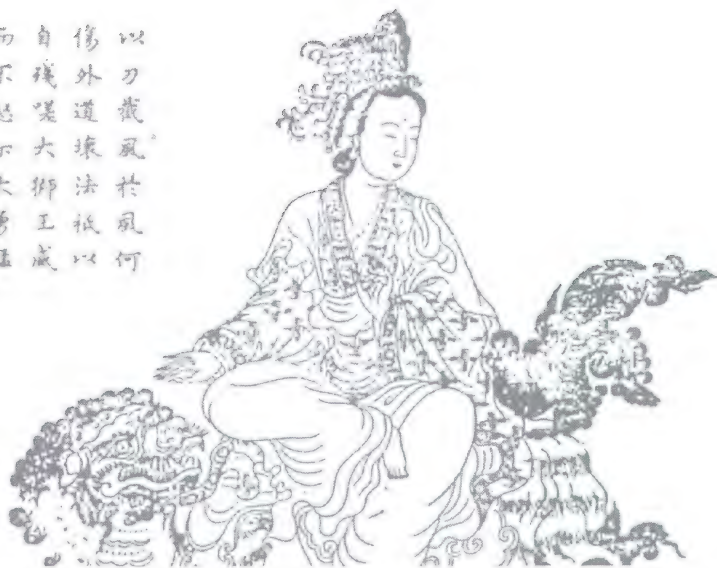 以刀截風於風何
傷外道壞法祇以
自殘嗟大獅王威
而不大勇猛